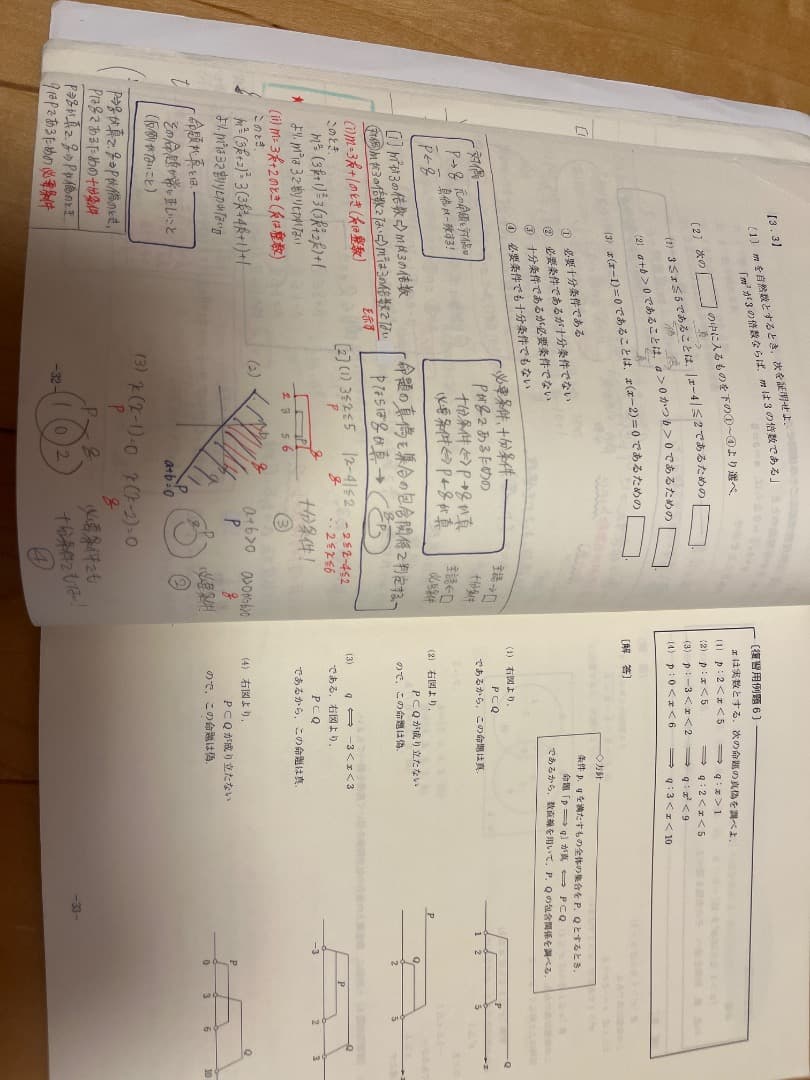 【3.3】
〔1〕 mを自然数とするとき、次を証明せよ。
「m²が3の倍数ならば、mは3の倍数である」
〔2〕 次の の中に入るものを下の①~④より選べ
(1) 3≦x≦5であることは、|x-4|≦2であるための
(2) a+b>0であることは、a>0かつb>0であるための
(3) x(x-1)=0であることは、x(x-2)=0であるための
① 必要十分条件である
② 必要条件であるが十分条件でない
③ 十分条件であるが必要条件でない
④ 必要条件でも十分条件でもない
対偶
P→q 元の命題と対偶は
P̄←q̄ 真偽が一致する!
[1] m²が3の倍数⇒mは3の倍数
(対偶)mが3の倍数でない⇒m²は3の倍数でない
を示す
(i) m=3k+1のとき(kは整数)
このとき
m²=(3k+1)²=3(3k²+2k)+1
より、m²は3で割りきれない
(ii) m=3k+2のとき(kは整数)
このとき
m²=(3k+2)²=3(3k²+4k+1)+1
より、m²は3で割りきれない
命題が真とは
その命題が常に正しいこと
(反例がないこと)
P⇒qが真で、q⇒Pが偽のとき、
PはqであるためのA十分条件
P⇒qが偽で、q⇒Pが真のとき
必要条件
必要条件、十分条件
Pがqであるための
十分条件⇔P→qが真
必要条件⇔P←qが真
主語→□
十分条件
主語←□
必要条件
命題の真偽を集合の包含関係で判定する
Pならばqが真→ q P
[2] (1) 3≦x≦5 |x-4|≦2 -2≦x-4≦2
P q ∴2≦x≦6
2 3 5 6
P q
十分条件!
③
(2)
a+b>0 a>0かつb>0
P q
a+b=0
q P
必要条件
②
(3) x(x-1)=0 x(x-2)=0
P q
P q
1 0 2
必要条件でも
十分条件でもない!
④
-32-
〔復習用例題6〕
xは実数とする。次の命題の真偽を調べよ。
(1) p:2<x<5 ⟹ q:x>1
(2) p:x<5 ⟹ q:2<x<5
(3) p:-3<x<2 ⟹ q:x²<9
(4) p:0<x<6 ⟹ q:3<x<10
〔解 答〕
◇方針
条件p, qを満たすもの全体の集合をP, Qとするとき、
命題「p⟹q」が真 ⟺ P⊂Q
であるから、数直線を用いて、P, Qの包含関係を調べる。
(1) 右図より、
P⊂Q
であるから、この命題は真
P Q
1 2 5 x
(2) 右図より、
P⊂Qが成り立たない
ので、この命題は偽。
P Q
2 5 x
(3) q ⟺ -3<x<3
である。右図より、
P⊂Q
であるから、この命題は真。
P Q
-3 2 3
(4) 右図より、
P⊂Qが成り立たない
ので、この命題は偽。
P Q
0 3 6 10
-33-